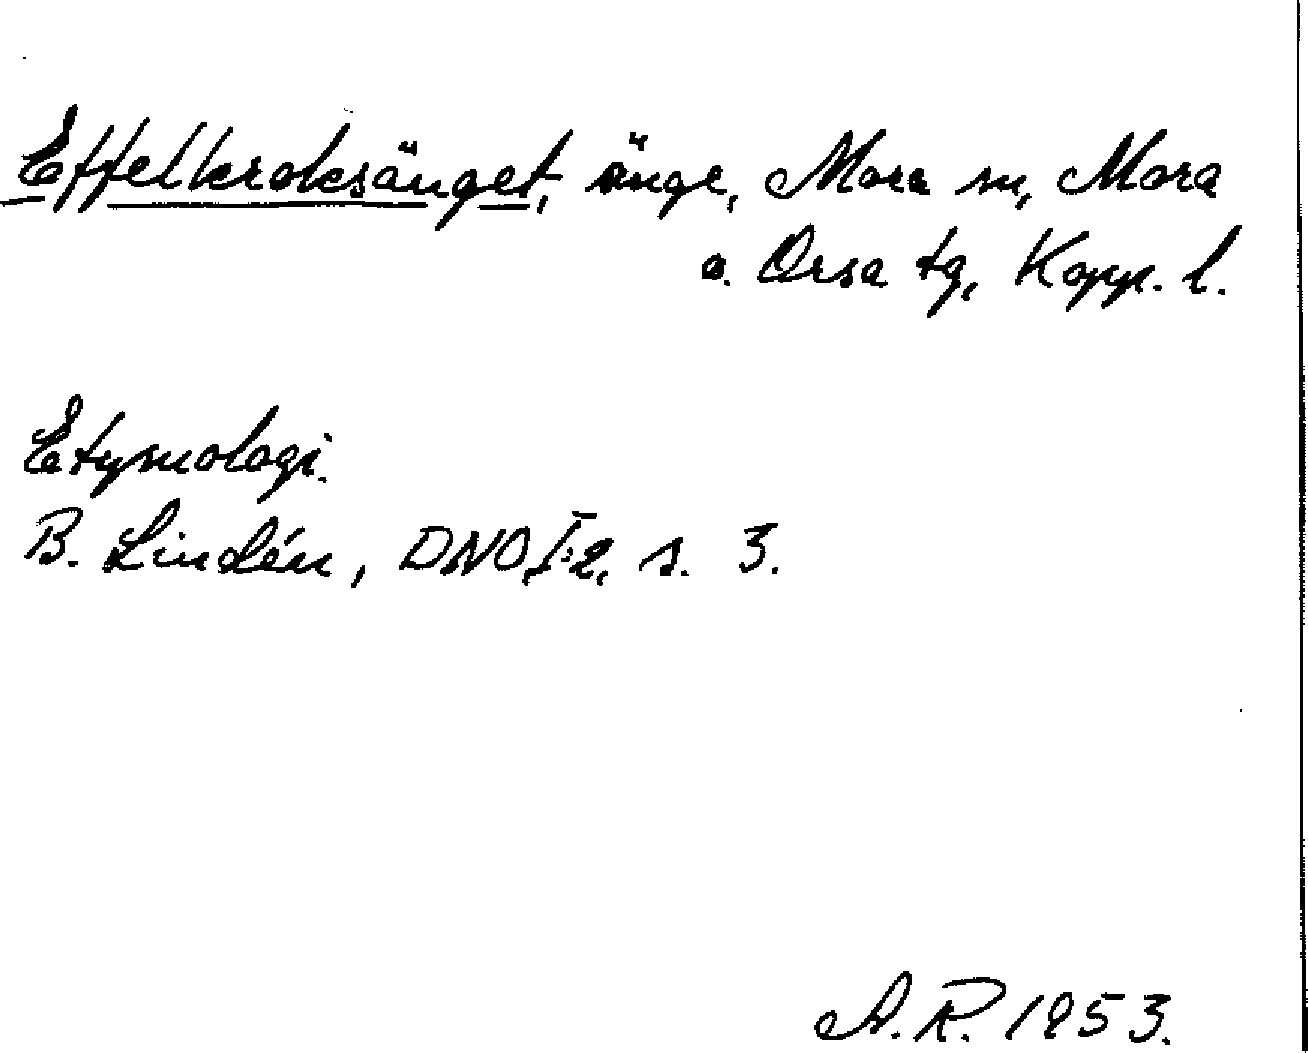 Effelkroksänget, änge, Mora sn, Mora
o. Orsa tg, Kopp. l.
Etymologi.
B. Lindén, DNO I:2, s. 3.
A.R. 1953.